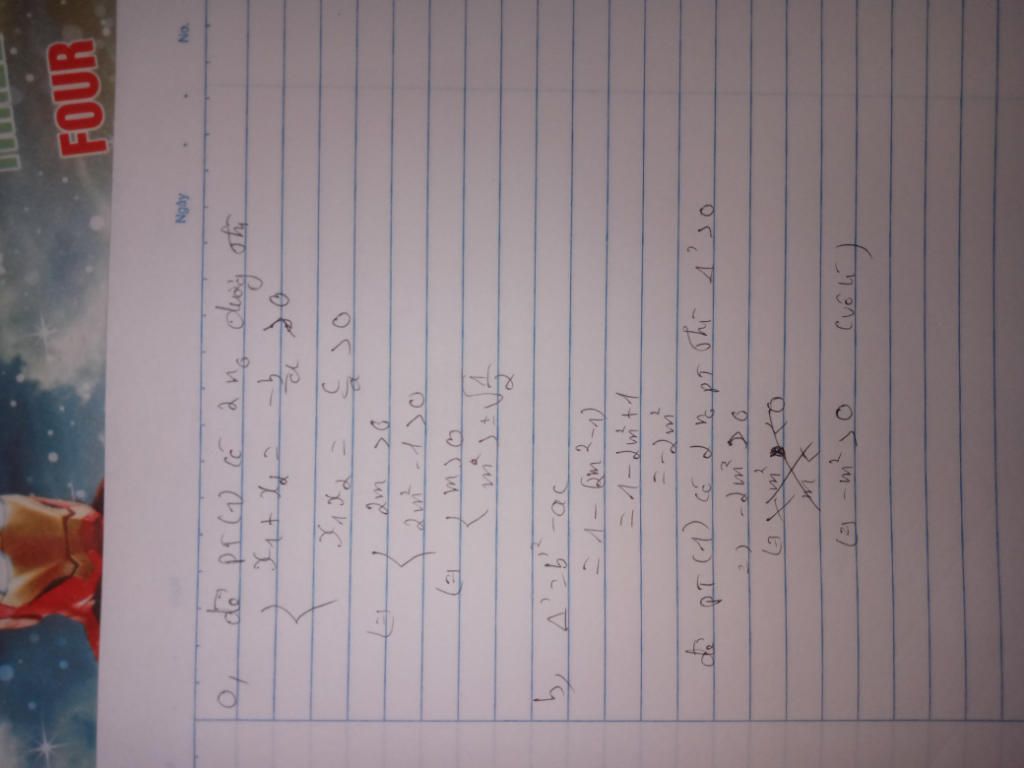 FOUR
Ngày
No.
a, để pt (1) có 2 no dương thì
{ x1 + x2 = -b/a > 0
x1x2 = c/a > 0
(=) { 2m > 0
2m² - 1 > 0
(=) { m > 0
m > ±√1/2
b, Δ' = b'² - ac
= 1 - (2m² - 1)
= 1 - 2m² + 1
= -2m²
để pt (1) có 2 no pt thì Δ' > 0
=) -2m² > 0
(=) m² < 0
m
(=) -m² > 0 (vô lí)